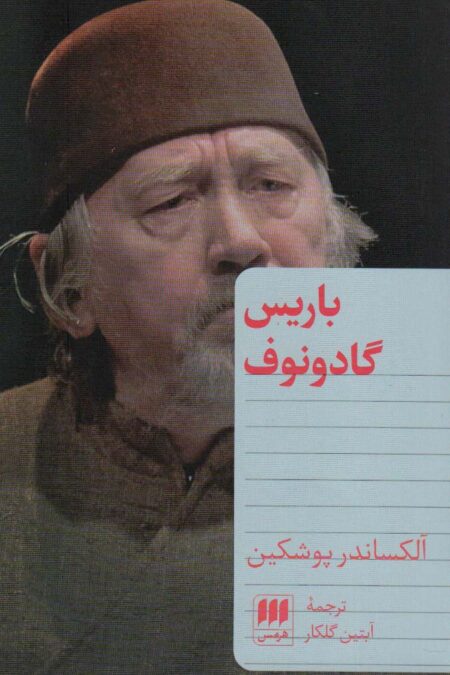 باریس
گادونوف
آلکساندر پوشکین
ترجمهٔ
آبتین گلکار
هرمس